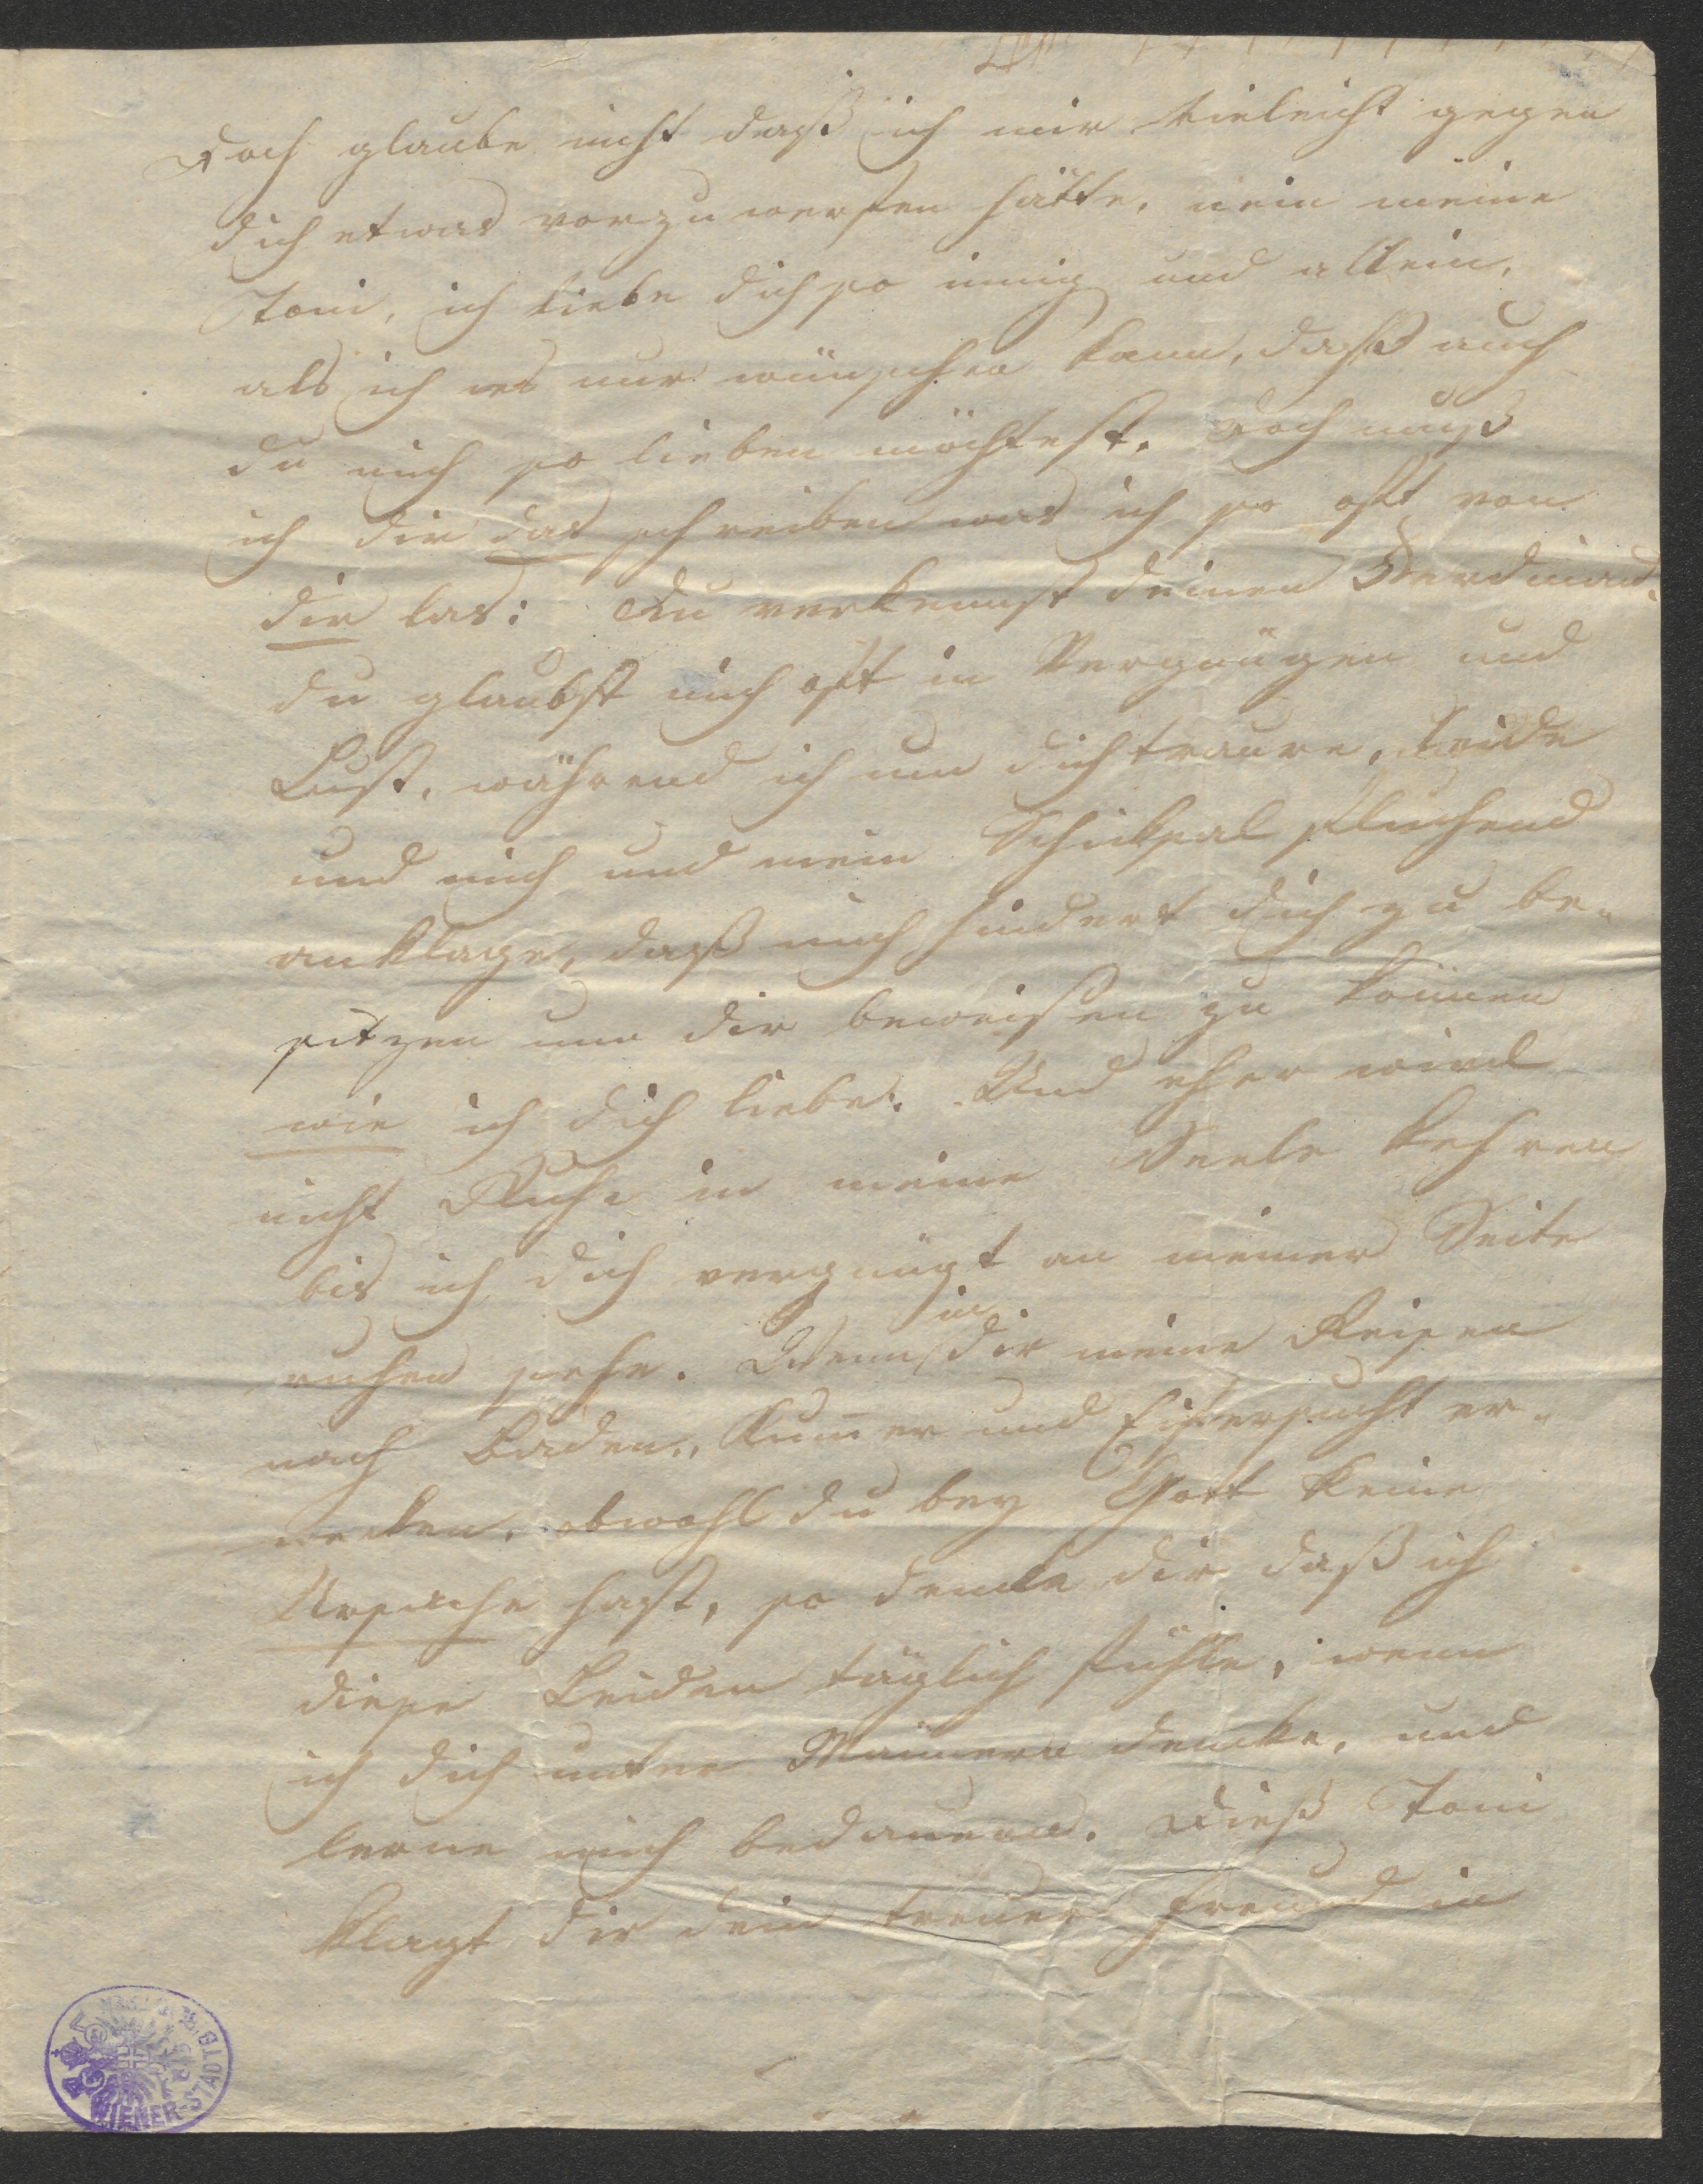 Doch glaube nicht daß ich mir vieleicht gegen
dich etwas vorzuwerfen hätte, nein meine
Toni, ich liebe dich so innig und allein,
als ich es nur wünschen kann, daß auch
du mich so lieben möchtest. Doch muß
ich dir das schreiben was ich so oft von
dir las: Du verkennst deinen Ferdinand.
du glaubst mich oft in Vergnügen und
Lust, während ich um dich traure, leide
und mich und mein Schicksal fluchend
anklage, daß mich hindert dich zu be-
sitzen um dir beweisen zu können
wie ich dich liebe. Und eher wird
nicht Ruhe in meine Seele kehren
bis ich dich vergnügt an meiner Seite
ruhen sehe. Wenn in dir meine Reisen
nach Baden, Kum̄er und Eifersucht er-
wecken, obwohl du bey Gott keine
Ursache hast, so denke dir daß ich
diese Leiden täglich fühle, wenn
ich dich unter Männern denke, und
lerne mich bedauern. Dieß Toni
klagt dir dein treuer Freund in
WIENER-STADTB